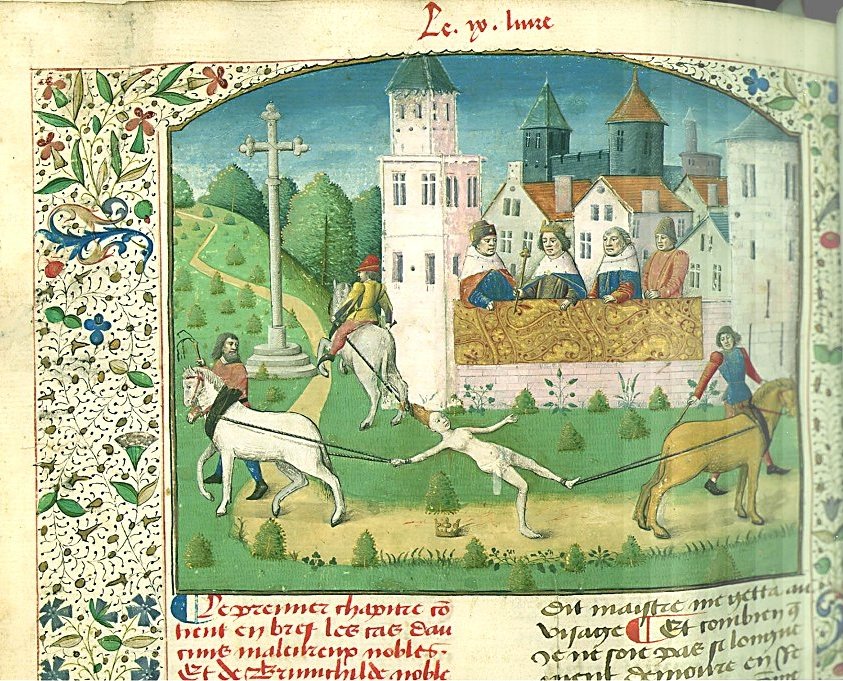 Le. ix. liure
Le premier chapitre cō
tient en bref les cas dau
cuns maleureux nobles.
Et de Brunichilde noble
dit maistre me getta au
visage Et combien q̄
Je ne soie pas si longue
demoure en